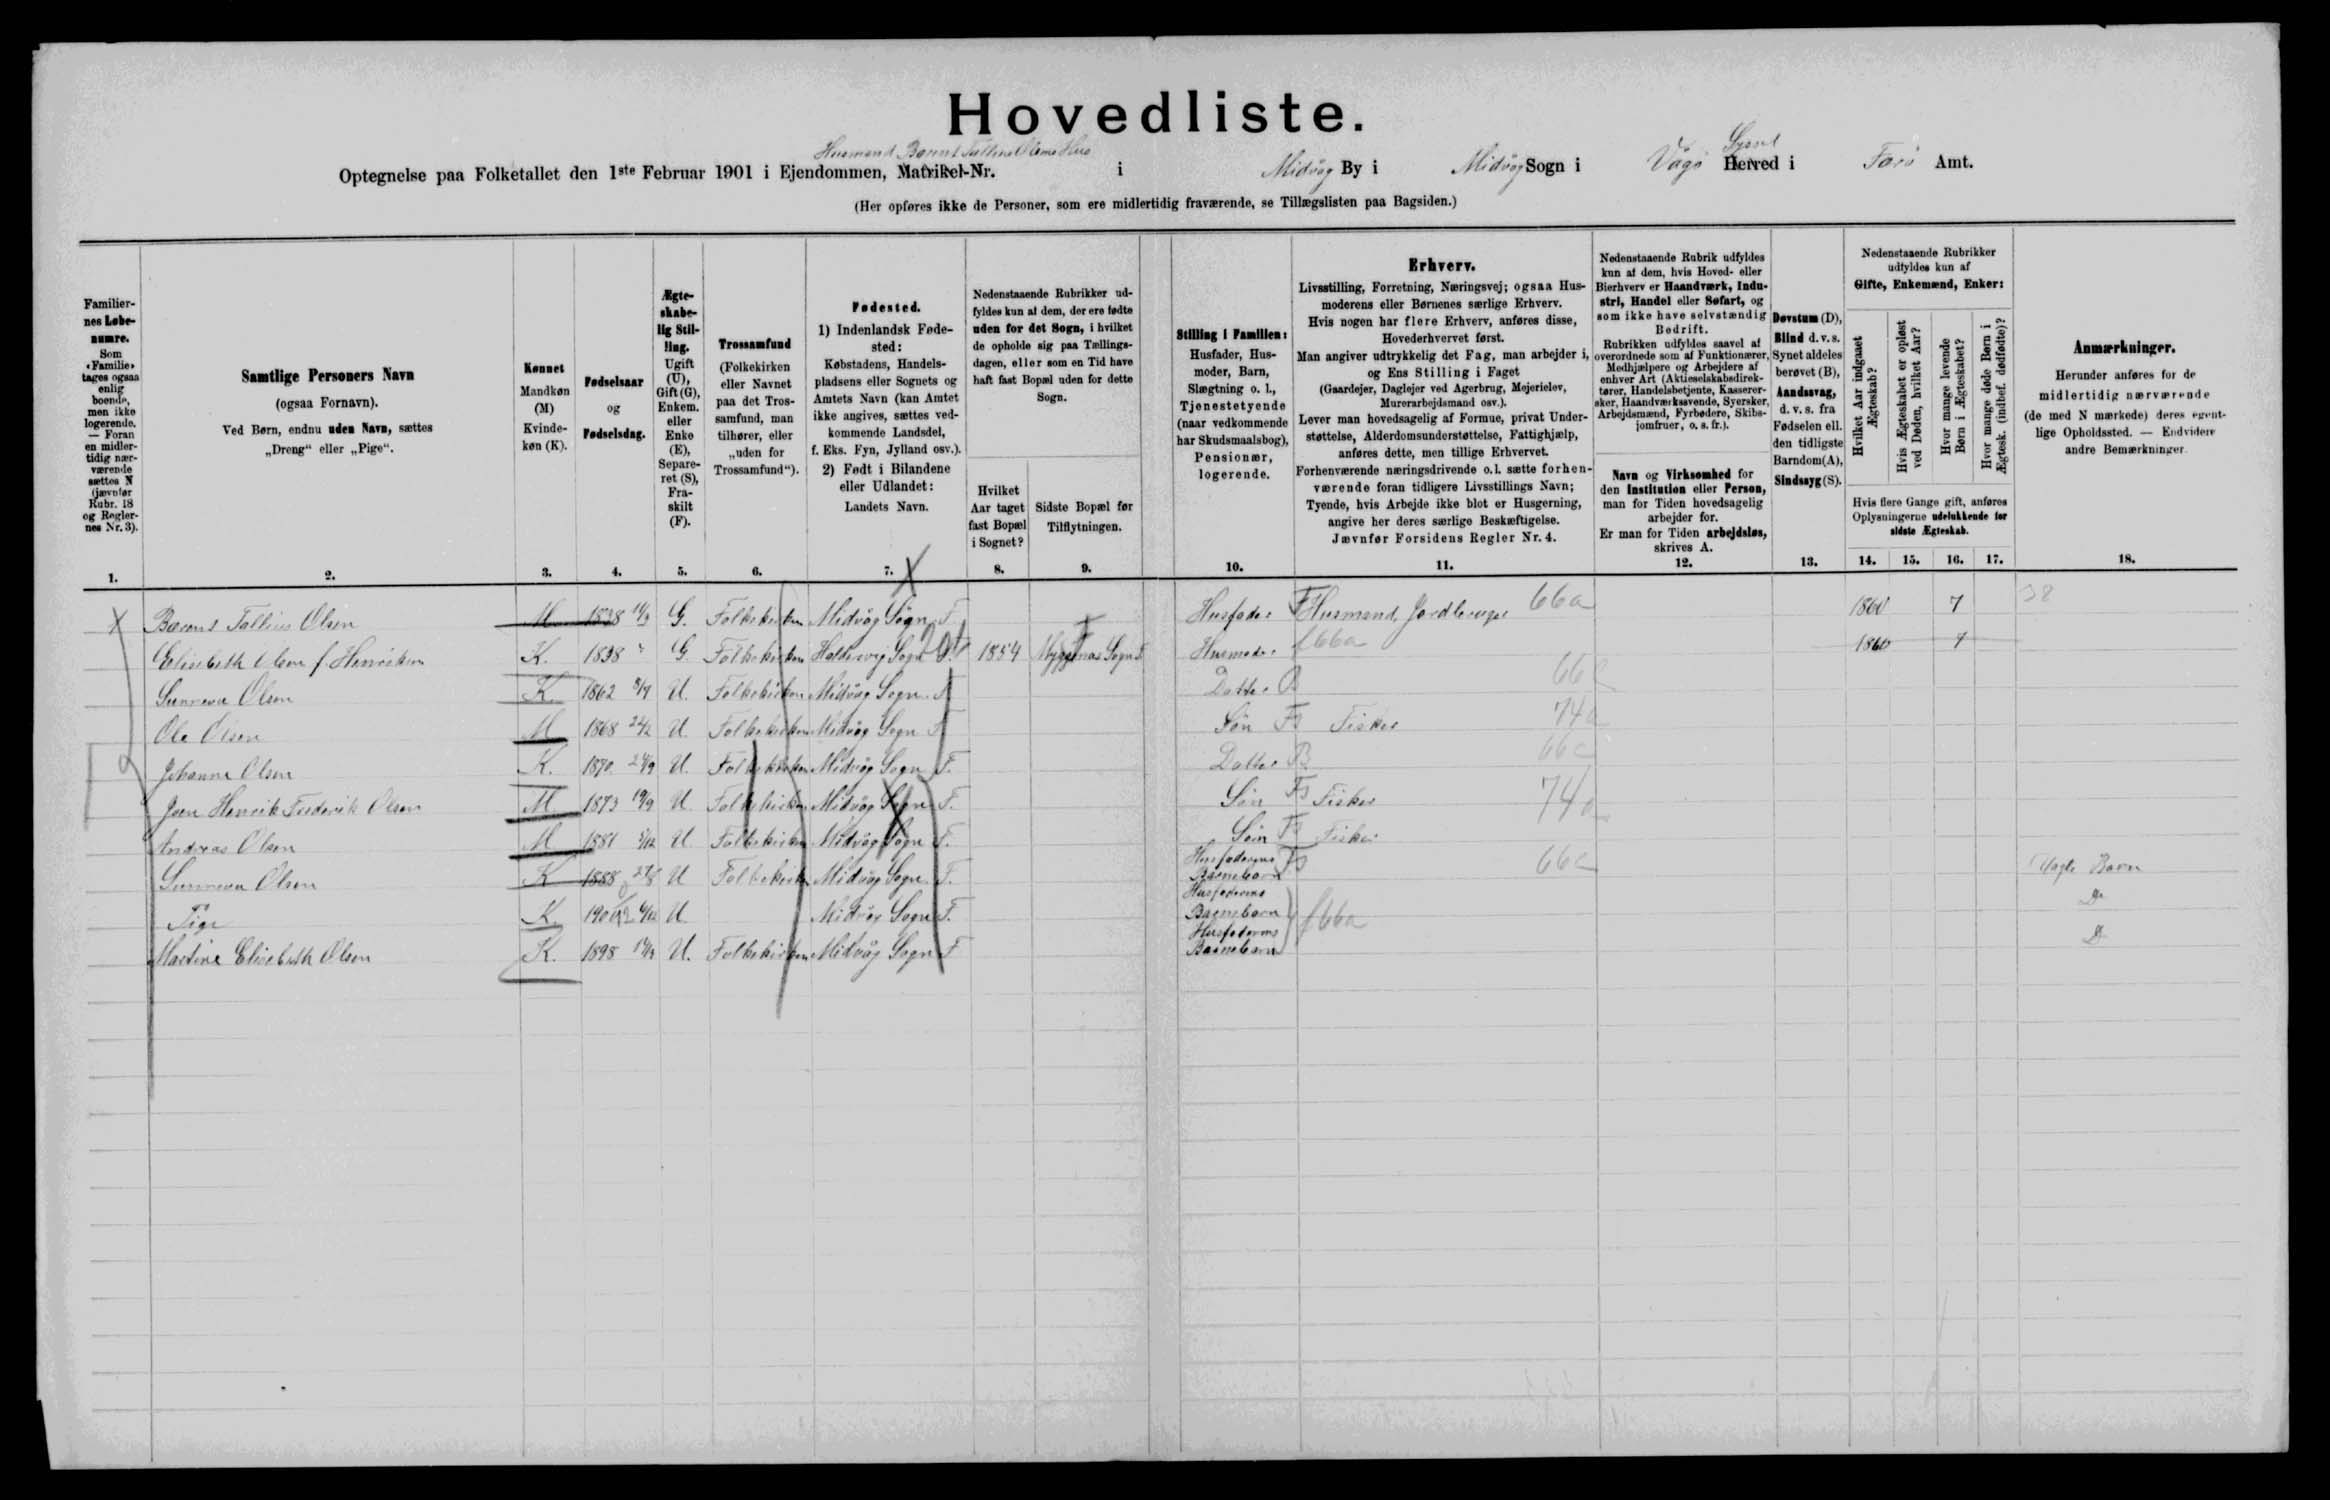 Hovedliste.
Husmand Barent Tallius Olsens Hus
Optegnelse paa Folketallet den 1ste Februar 1901 i Ejendommen, Matrikel-Nr. i Midvåg By i Midvåg Sogn i Vågø Herred Syssel i Færø Amt.
(Her opføres ikke de Personer, som ere midlertidig fraværende, se Tillægslisten paa Bagsiden.)
Familier-
nes Løbe-
numre.
Som
«Familie»
tages ogsaa
enlig
boende,
men ikke
logerende.
— Foran
en midler-
tidig nær-
værende
sættes N
(jævnfør
Rubr. 18
og Regler-
nes Nr. 3).
1.
Samtlige Personers Navn
(ogsaa Fornavn).
Ved Børn, endnu uden Navn, sættes
„Dreng“ eller „Pige“.
2.
Kønnet
Mandkøn
(M)
Kvinde-
køn (K).
3.
Fødselsaar
og
Fødselsdag.
4.
Ægte-
skabe-
lig Stil-
ling.
Ugift
(U),
Gift (G),
Enkem.
eller
Enke
(E),
Separe-
ret (S),
Fra-
skilt
(F).
5.
Trossamfund
(Folkekirken
eller Navnet
paa det Tros-
samfund, man
tilhører, eller
„uden for
Trossamfund“).
6.
Fødested.
1) Indenlandsk Føde-
sted:
Købstadens, Handels-
pladsens eller Sognets og
Amtets Navn (kan Amtet
ikke angives, sættes ved-
kommende Landsdel,
f. Eks. Fyn, Jylland osv.).
2) Født i Bilandene
eller Udlandet:
Landets Navn.
7.
Nedenstaaende Rubrikker ud-
fyldes kun af dem, der ere fødte
uden for det Sogn, i hvilket
de opholde sig paa Tællings-
dagen, eller som en Tid have
haft fast Bopæl uden for dette
Sogn.
Hvilket
Aar taget
fast Bopæl
i Sognet?
8.
Sidste Bopæl før
Tilflytningen.
9.
Stilling i Familien:
Husfader, Hus-
moder, Barn,
Slægtning o. l.,
Tjenestetyende
(naar vedkommende
har Skudsmaalsbog),
Pensionær,
logerende.
10.
Erhverv.
Livsstilling, Forretning, Næringsvej; ogsaa Hus-
moderens eller Børnenes særlige Erhverv.
Hvis nogen har flere Erhverv, anføres disse,
Hovederhvervet først.
Man angiver udtrykkelig det Fag, man arbejder i,
og Ens Stilling i Faget
(Gaardejer, Daglejer ved Agerbrug, Mejerielev,
Murerarbejdsmand osv.).
Lever man hovedsagelig af Formue, privat Under-
støttelse, Alderdomsunderstøttelse, Fattighjælp,
anføres dette, men tillige Erhvervet.
Forhenværende næringsdrivende o. l. sætte forhen-
værende foran tidligere Livsstillings Navn;
Tyende, hvis Arbejde ikke blot er Husgerning,
angive her deres særlige Beskæftigelse.
Jævnfør Forsidens Regler Nr. 4.
11.
Nedenstaaende Rubrik udfyldes
kun af dem, hvis Hoved- eller
Bierhverv er Haandværk, Indu-
stri, Handel eller Søfart, og
som ikke have selvstændig
Bedrift.
Rubrikken udfyldes saavel af
overordnede som af Funktionærer,
Medhjælpere og Arbejdere af
enhver Art (Aktieselskabsdirek-
tører, Handelsbetjente, Kasserer-
sker, Haandværkssvende, Syersker,
Arbejdsmænd, Fyrbødere, Skibs-
jomfruer, o. s. fr.).
Navn og Virksomhed for
den Institution eller Person,
man for Tiden hovedsagelig
arbejder for.
Er man for Tiden arbejdsløs,
skrives A.
12.
Døvstum (D),
Blind d. v. s.
Synet aldeles
berøvet (B),
Aandssvag,
d. v. s. fra
Fødselen ell.
den tidligste
Barndom (A),
Sindssyg (S).
13.
Nedenstaaende Rubrikker
udfyldes kun af
Gifte, Enkemænd, Enker:
Hvilket Aar indgaaet
Ægteskab?
Hvis Ægteskabet er opløst
ved Døden, hvilket Aar?
Hvor mange levende
Børn i Ægteskabet?
Hvor mange døde Børn i
Ægtesk. (indbef. dødfødte)?
Hvis flere Gange gift, anføres
Oplysningerne udelukkende for
sidste Ægteskab.
14. 15. 16. 17.
Anmærkninger.
Herunder anføres for de
midlertidig nærværende
(de med N mærkede) deres egent-
lige Opholdssted. — Endvidere
andre Bemærkninger.
18.
Barent Tallius Olsen M 1838 G. Folkekirken Midvåg Sogn F. Husfader Husmand, Jordbruger 66a 1860 7 38
Elisabeth Olsen f. Henriksen K. 1838 G. Folkekirken Haldersvig Sogn F. 1854 Myggenæs Sogn F Husmoder f66a 1860 7
Sunneva Olsen K 1862 U. Folkekirken Midvåg Sogn F Datter B 66c
Ole Olsen M 1868 U. Folkekirken Midvåg Sogn F Søn Fs Fisker 74a
Johanne Olsen K. 1870 U. Folkekirken Midvåg Sogn F. Datter B 66c
Joen Henrik Frederik Olsen M 1873 19/9 U. Folkekirken Midvåg Sogn F. Søn Fs Fisker 74a
Andreas Olsen M 1881 U Folkekirken Midvåg Sogn F. Søn Fs Fisker
Sunneva Olsen K 1888 U Folkekirken Midvåg Sogn F. Husfaderens Barnebarn 66c Uægte Barn
Pige K. U. Midvåg Sogn F. Husfaderens Barnebarn f66a Do
Martine Elisabeth Olsen K. 1898 U. Folkekirken Midvåg Sogn F Husfaderens Barnebarn D